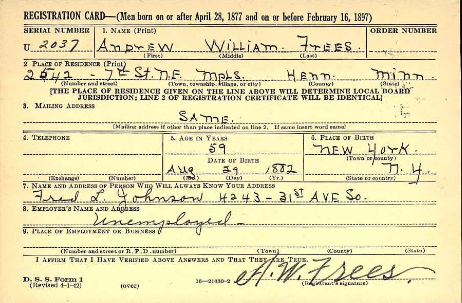 REGISTRATION CARD—(Men born on or after April 28, 1877 and on or before February 16, 1897)
SERIAL NUMBER 1. NAME (Print) ORDER NUMBER
U 2037 ANDREW WILLIAM FREES
(First) (Middle) (Last)
2. PLACE OF RESIDENCE (Print)
2642 - 7th St. NE. MPLS. HENN. MINN.
(Number and street) (Town, township, village, or city) (County) (State)
[THE PLACE OF RESIDENCE GIVEN ON THE LINE ABOVE WILL DETERMINE LOCAL BOARD
JURISDICTION; LINE 2 OF REGISTRATION CERTIFICATE WILL BE IDENTICAL]
3. MAILING ADDRESS
SAME.
(Mailing address if other than place indicated on line 2. If same insert word same)
4. TELEPHONE 5. AGE IN YEARS 6. PLACE OF BIRTH
59 NEW YORK.
DATE OF BIRTH (Town or county)
AUG 29 1882 N.Y.
(Exchange) (Number) (Mo.) (Day) (Yr.) (State or country)
7. NAME AND ADDRESS OF PERSON WHO WILL ALWAYS KNOW YOUR ADDRESS
Fred L. Johnson 4243-31st AVE SO.
8. EMPLOYER'S NAME AND ADDRESS
Unemployed
9. PLACE OF EMPLOYMENT OR BUSINESS
(Number and street or R. F. D. number) (Town) (County) (State)
I AFFIRM THAT I HAVE VERIFIED ABOVE ANSWERS AND THAT THEY ARE TRUE.
D. S. S. Form 1
(Revised 4-1-42) (over) 16—21630-2 A. W. Frees
(Registrant's signature)